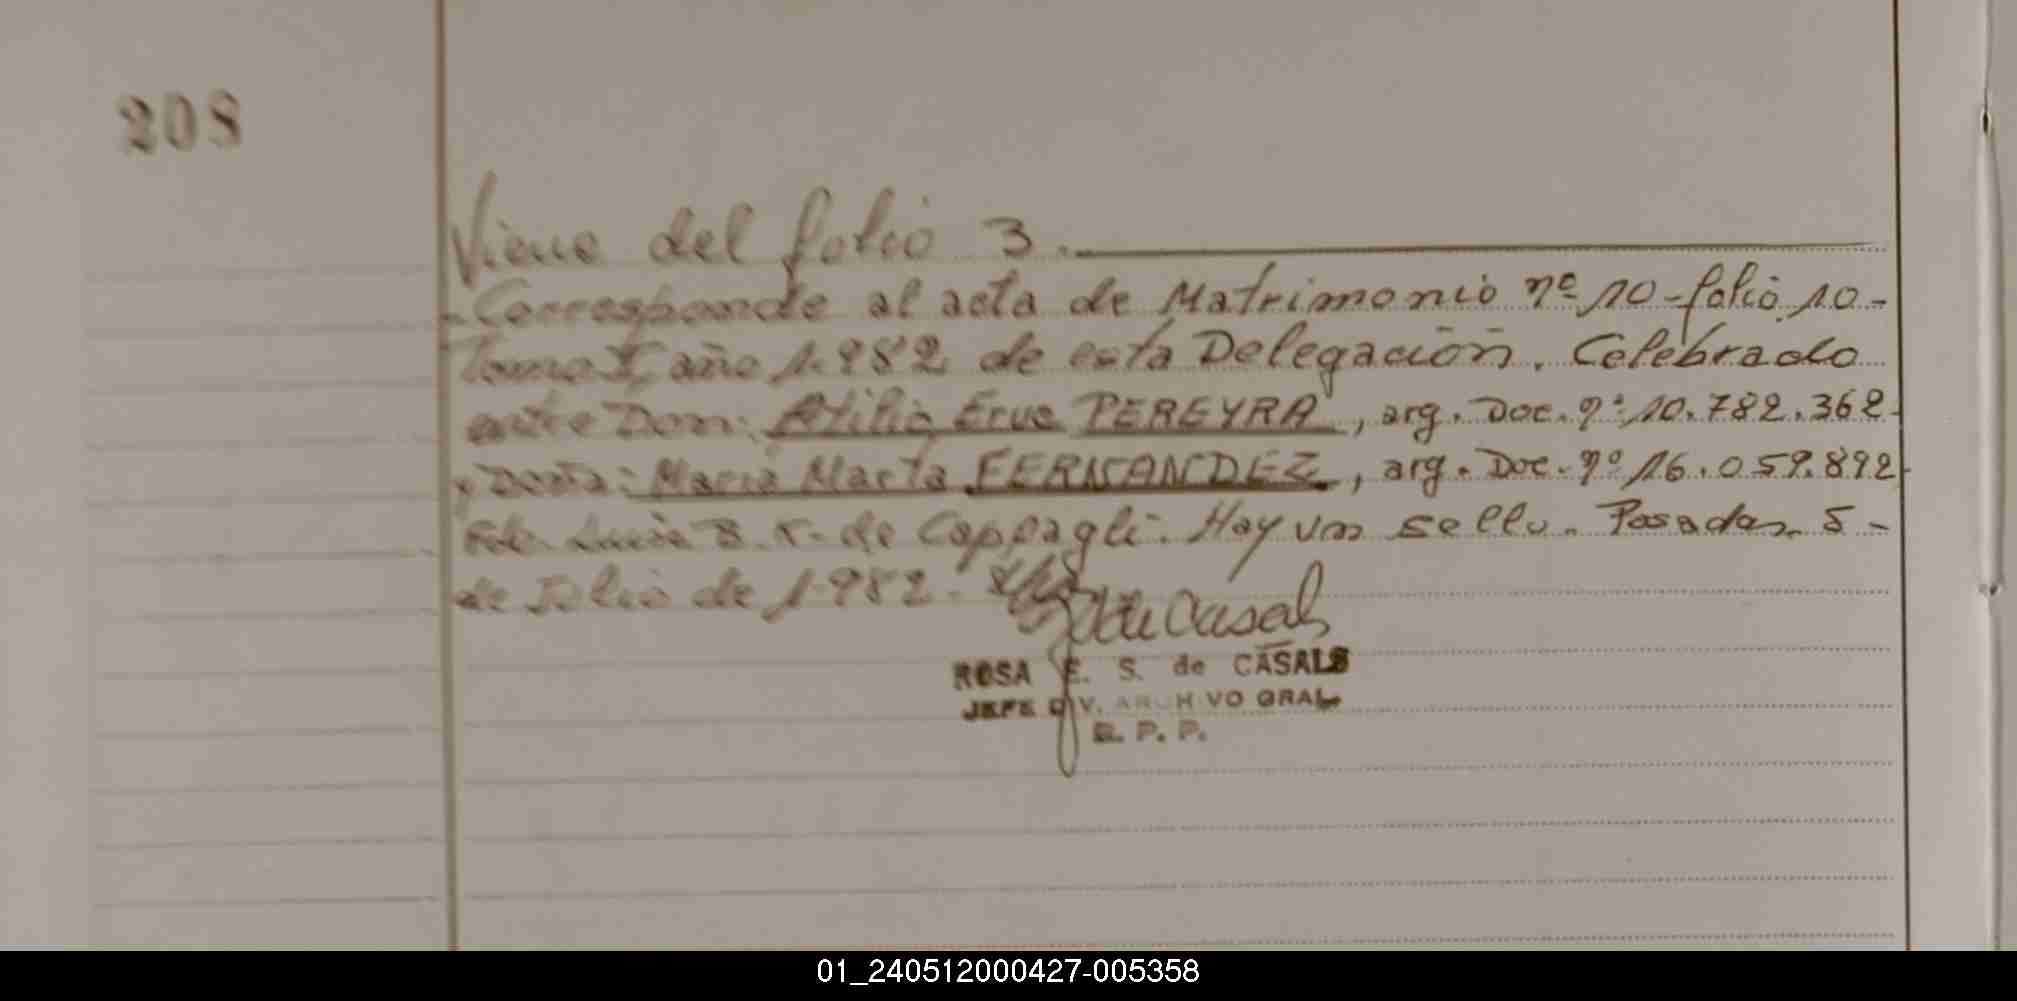 208
Viene del folio 3.
-Corresponde al acta de Matrimonio nº 10-folio 10-
Tomo I, año 1.982 de esta Delegación. Celebrado
entre Don: Atilio Erve PEREYRA, arg. Doc. nº 10.782.362-
y Doña: María Marta FERNANDEZ, arg. Doc. nº 16.059.892-
Fdo. Luisa B. de Coppagli. Hay un sello. Posadas. 5-
de Julio de 1.982.
de Casals
ROSA E. S. de CASALS
JEFE DIV. ARCHIVO GRAL
R. P. P.
01_240512000427-005358